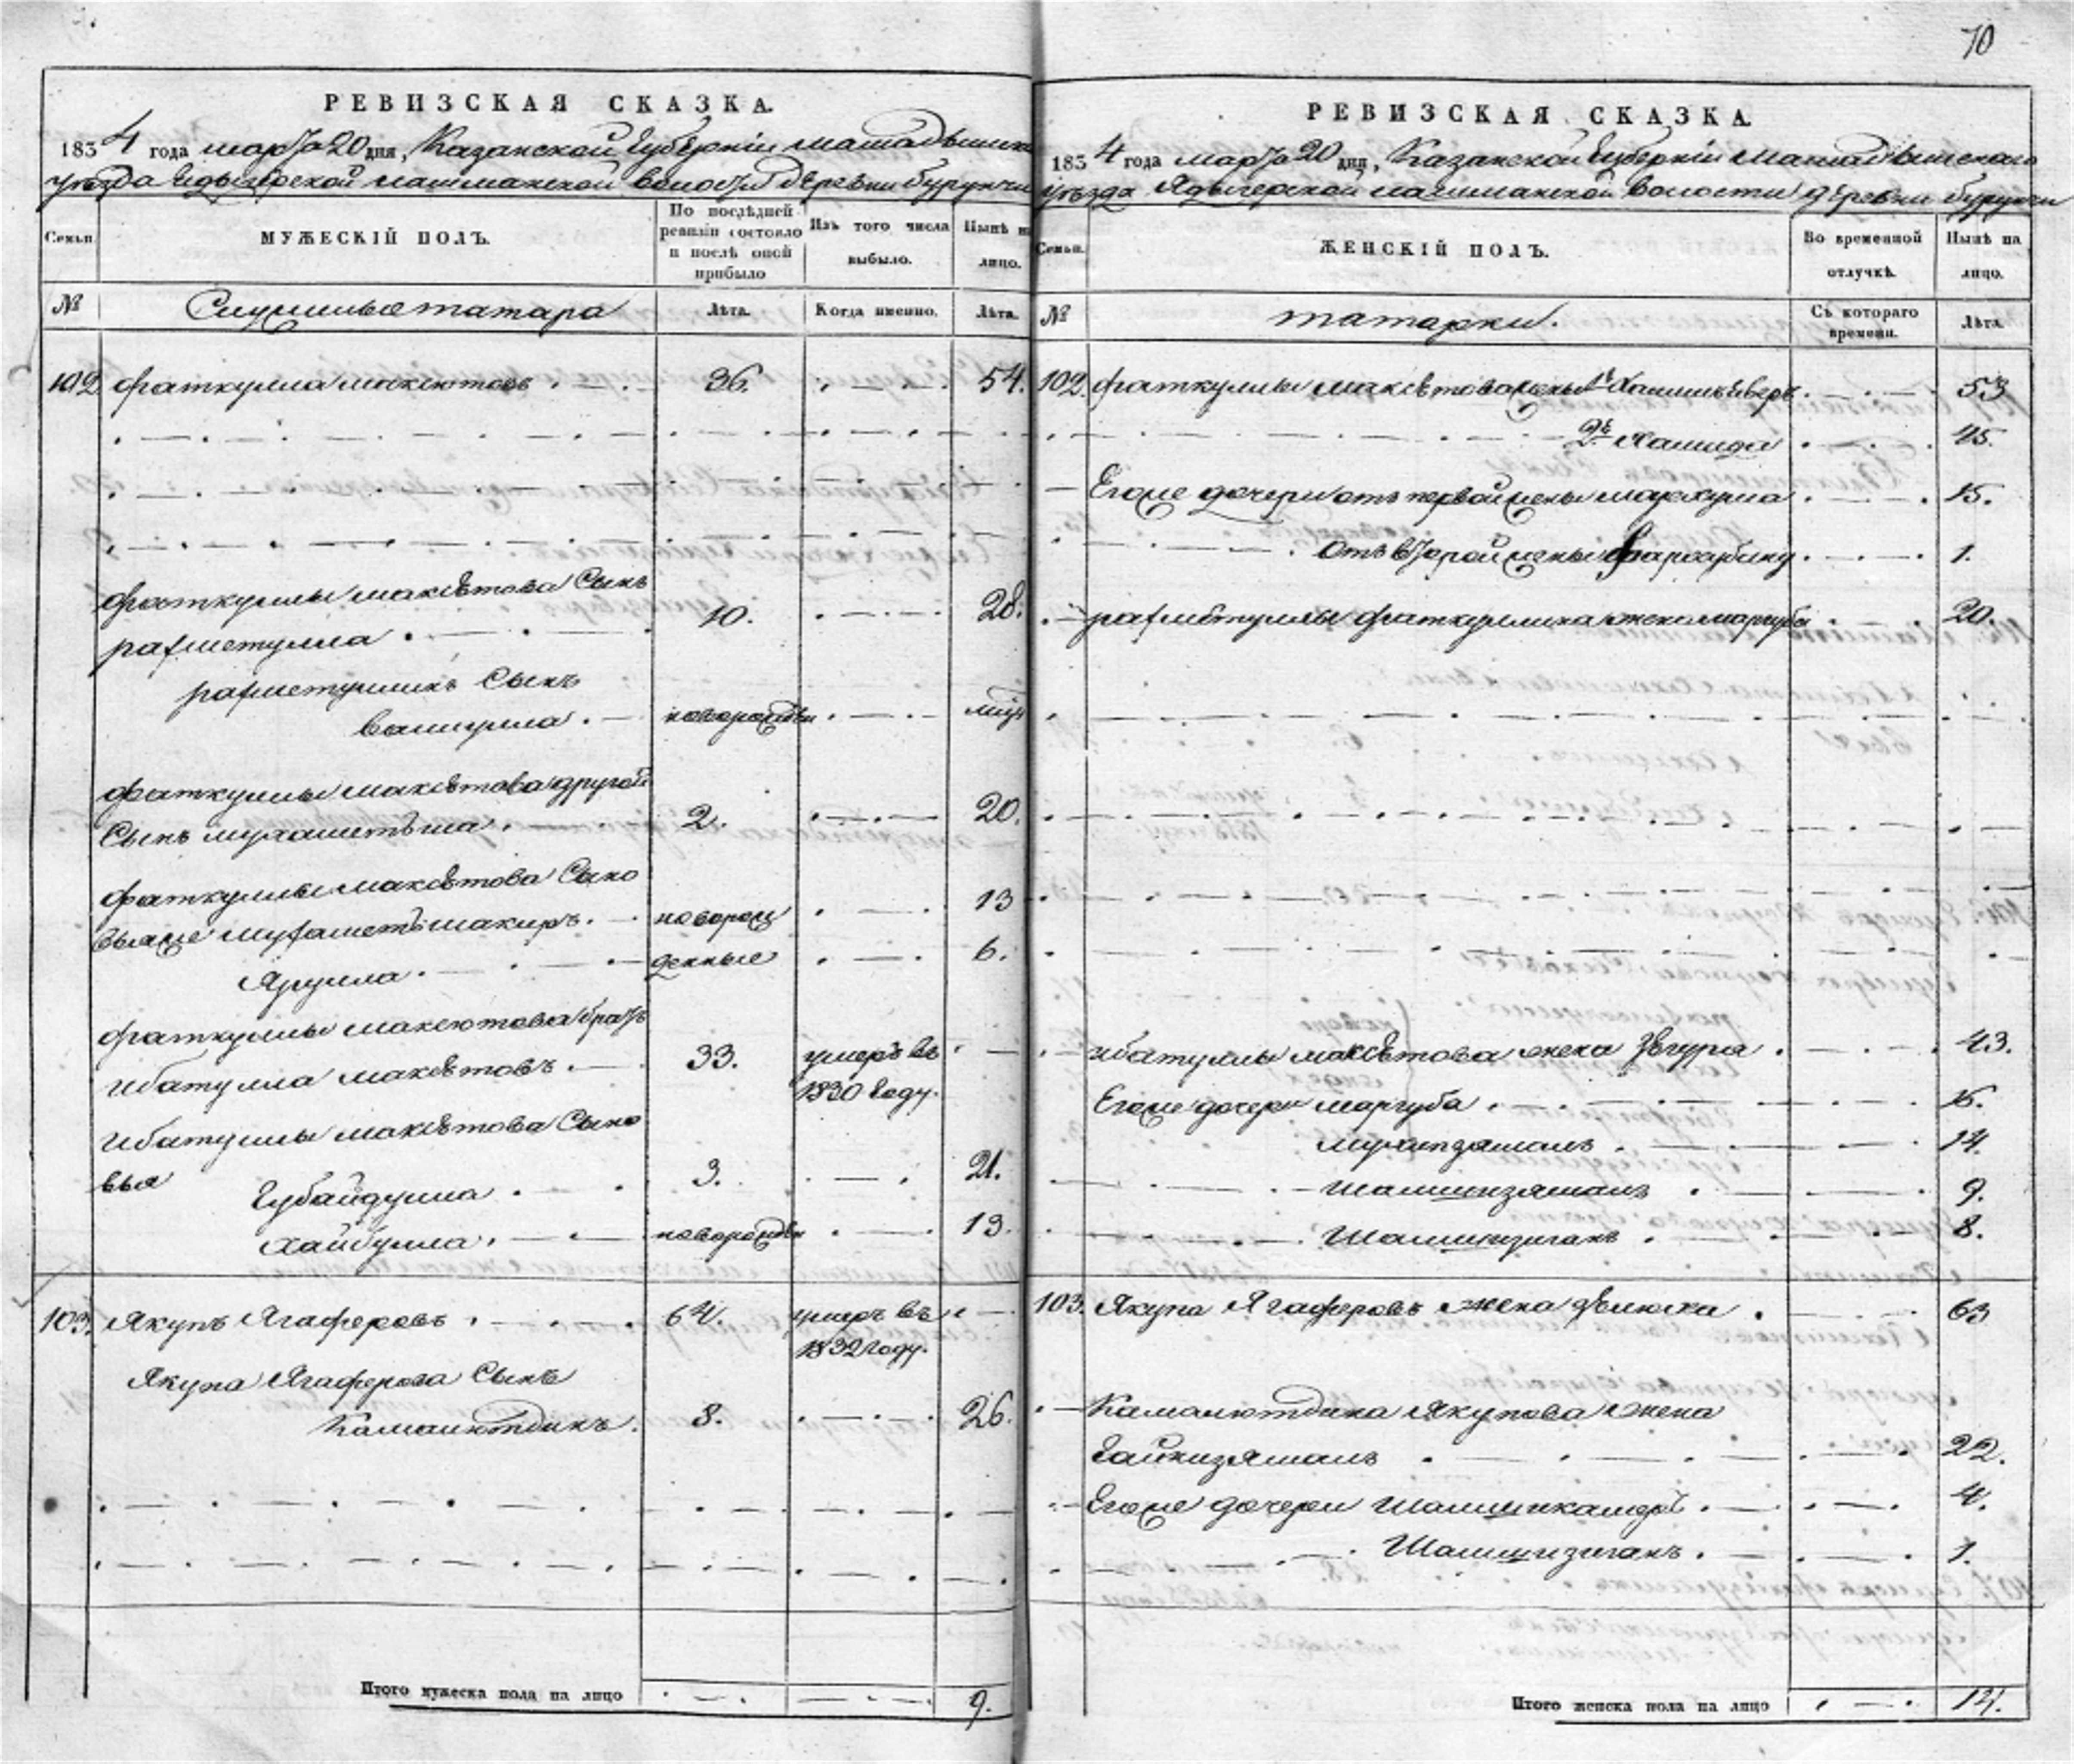 70
РЕВИЗСКАЯ СКАЗКА.
1834 года марта 20 дня, Казанской Губерніи мамадышска
уезда Ядыгерской лашманской волости деревни бурунчи
Семьи.
МУЖЕСКІЙ ПОЛЪ.
По послѣдней ревизіи состояло и послѣ оной прибыло
Изъ того числа выбыло.
Нынѣ на лицо.
№
Служилые татара
Лѣта.
Когда именно.
Лѣта.
102 фаткулла максютовъ 36. 54.
фаткуллы максютова Сынъ
рахметулла 10. 28.
рахметуллинъ Сынъ
валиулла новорожден
фаткуллы максютова другой
Сынъ мухаметша 2. 20.
фаткуллы максютова Сыно
вьяже мухаметшакиръ новорож 13
Ярулла денные 6.
фаткуллы максютова братъ
ибатулла максютовъ 33. умеръ въ
1830 году.
ибатуллы максютова Сыно
вья
Губайдулла 3. 21.
Хайбулла новорожден 13.
103. Якупъ Ягаферовъ 64. умеръ въ
1832 году.
Якупа Ягаферова Сынъ
Камалютдинъ. 8. 26.
Итого мужеска пола на лицо 9.
РЕВИЗСКАЯ СКАЗКА.
1834 года марта 20 дня, Казанской Губерніи Мамадышскаго
уезда Ядыгерской лашманской волости деревни бурунчи
Семьи.
ЖЕНСКІЙ ПОЛЪ.
Во временной отлучкѣ.
Нынѣ на лицо.
№
татарки.
Съ котораго времени.
Лѣта.
102. фаткуллы максютова жены 1я 53
2я Хамида 45.
Егоже дочери отъ первой жены 15.
отъ второй жены 1.
рахметуллы фаткуллина жена маргуба 20.
ибатуллы максютова жена 43.
Егоже дочери маргуба 16.
14.
9.
8.
103. Якупа Ягаферовъ жена 63
Камалютдина Якупова жена
22.
Егоже дочери 4.
1.
Итого женска пола на лицо 14.